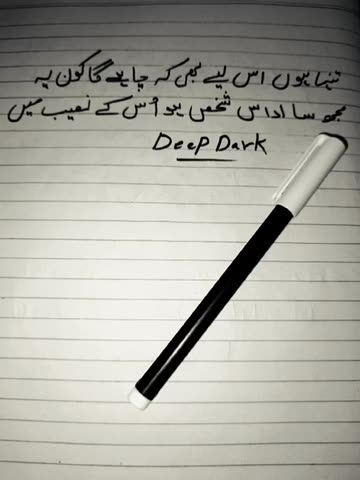 تنہا ہوں اس لیے بھی کہ چاہے گا کون یہ
مجھ سا اداس شخص ہو اُس کے نصیب میں
Deep Dark